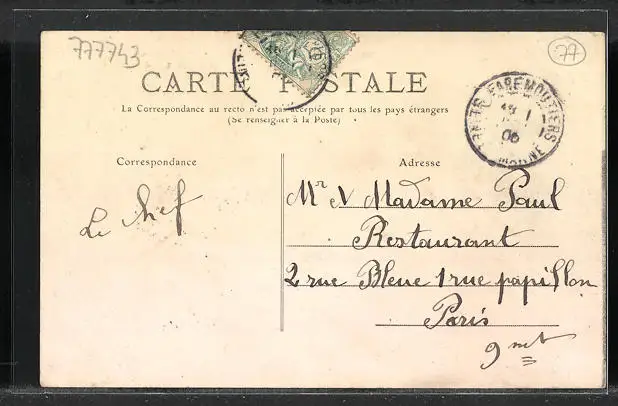 777743
77
CARTE POSTALE
La Correspondance au recto n'est pas acceptée par tous les pays étrangers
(Se renseigner à la Poste)
FAREMOUTIERS
06
Correspondance
Adresse
Le hef
Mr V Madame Paul
Restaurant
2 rue Bleue 1 rue papillon
Paris
9 met